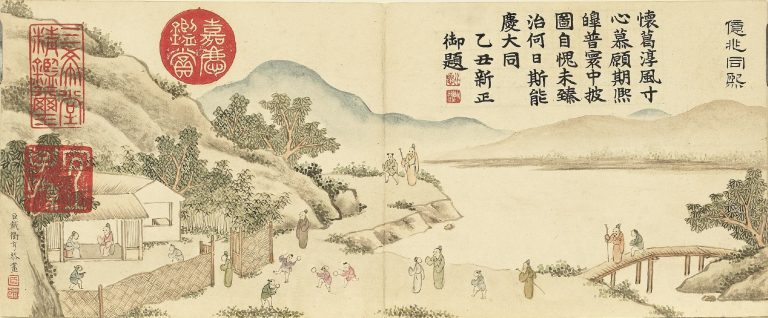 億兆同熙
懷葛淳風寸
心慕顧期熙
皞普寰中披
圖自愧未臻
治何日斯能
慶大同
乙丑新正
御題
嘉慶
鑑賞
三希堂
精鑑璽
宜子孫
臣戴衢亨恭畫